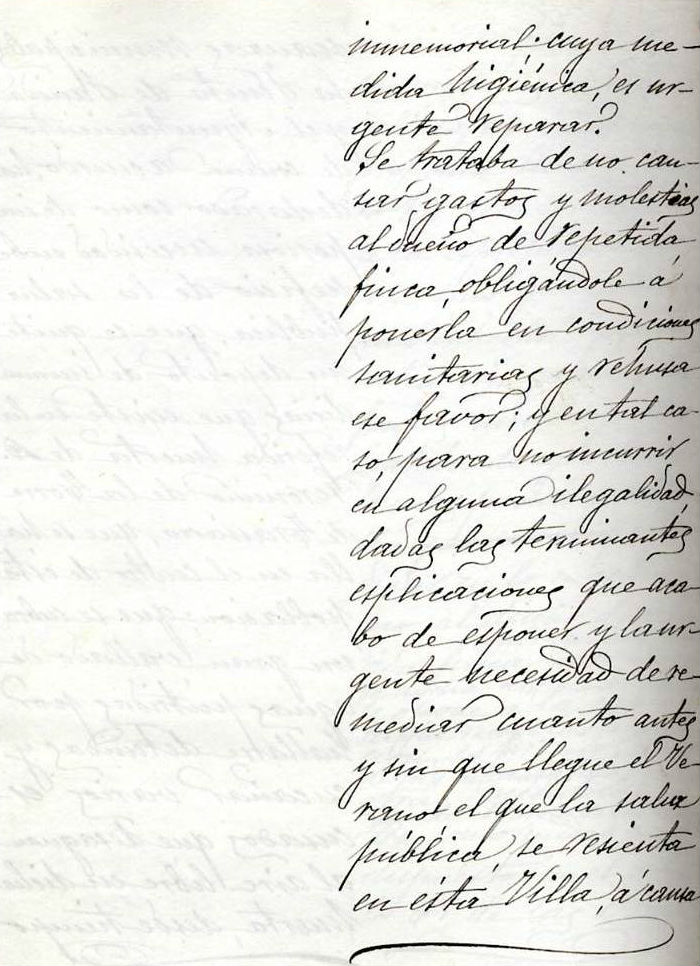 inmemorial; cuya me-
dida higiénica, es ur-
gente reparar.
Se trataba de no cau-
sar gastos y molestias
al dueño de repetida
finca, obligándole á
ponerla en condiciones
sanitarias y rehusa
ese favor; y en tal ca-
so, para no incurrir
en alguna ilegalidad,
dadas las terminantes
esplicaciones que aca-
bo de esponer y la ur-
gente necesidad de re-
mediar cuanto antes
y sin que llegue el Ve-
rano el que la salud
pública, se resienta
en ésta Villa, á causa